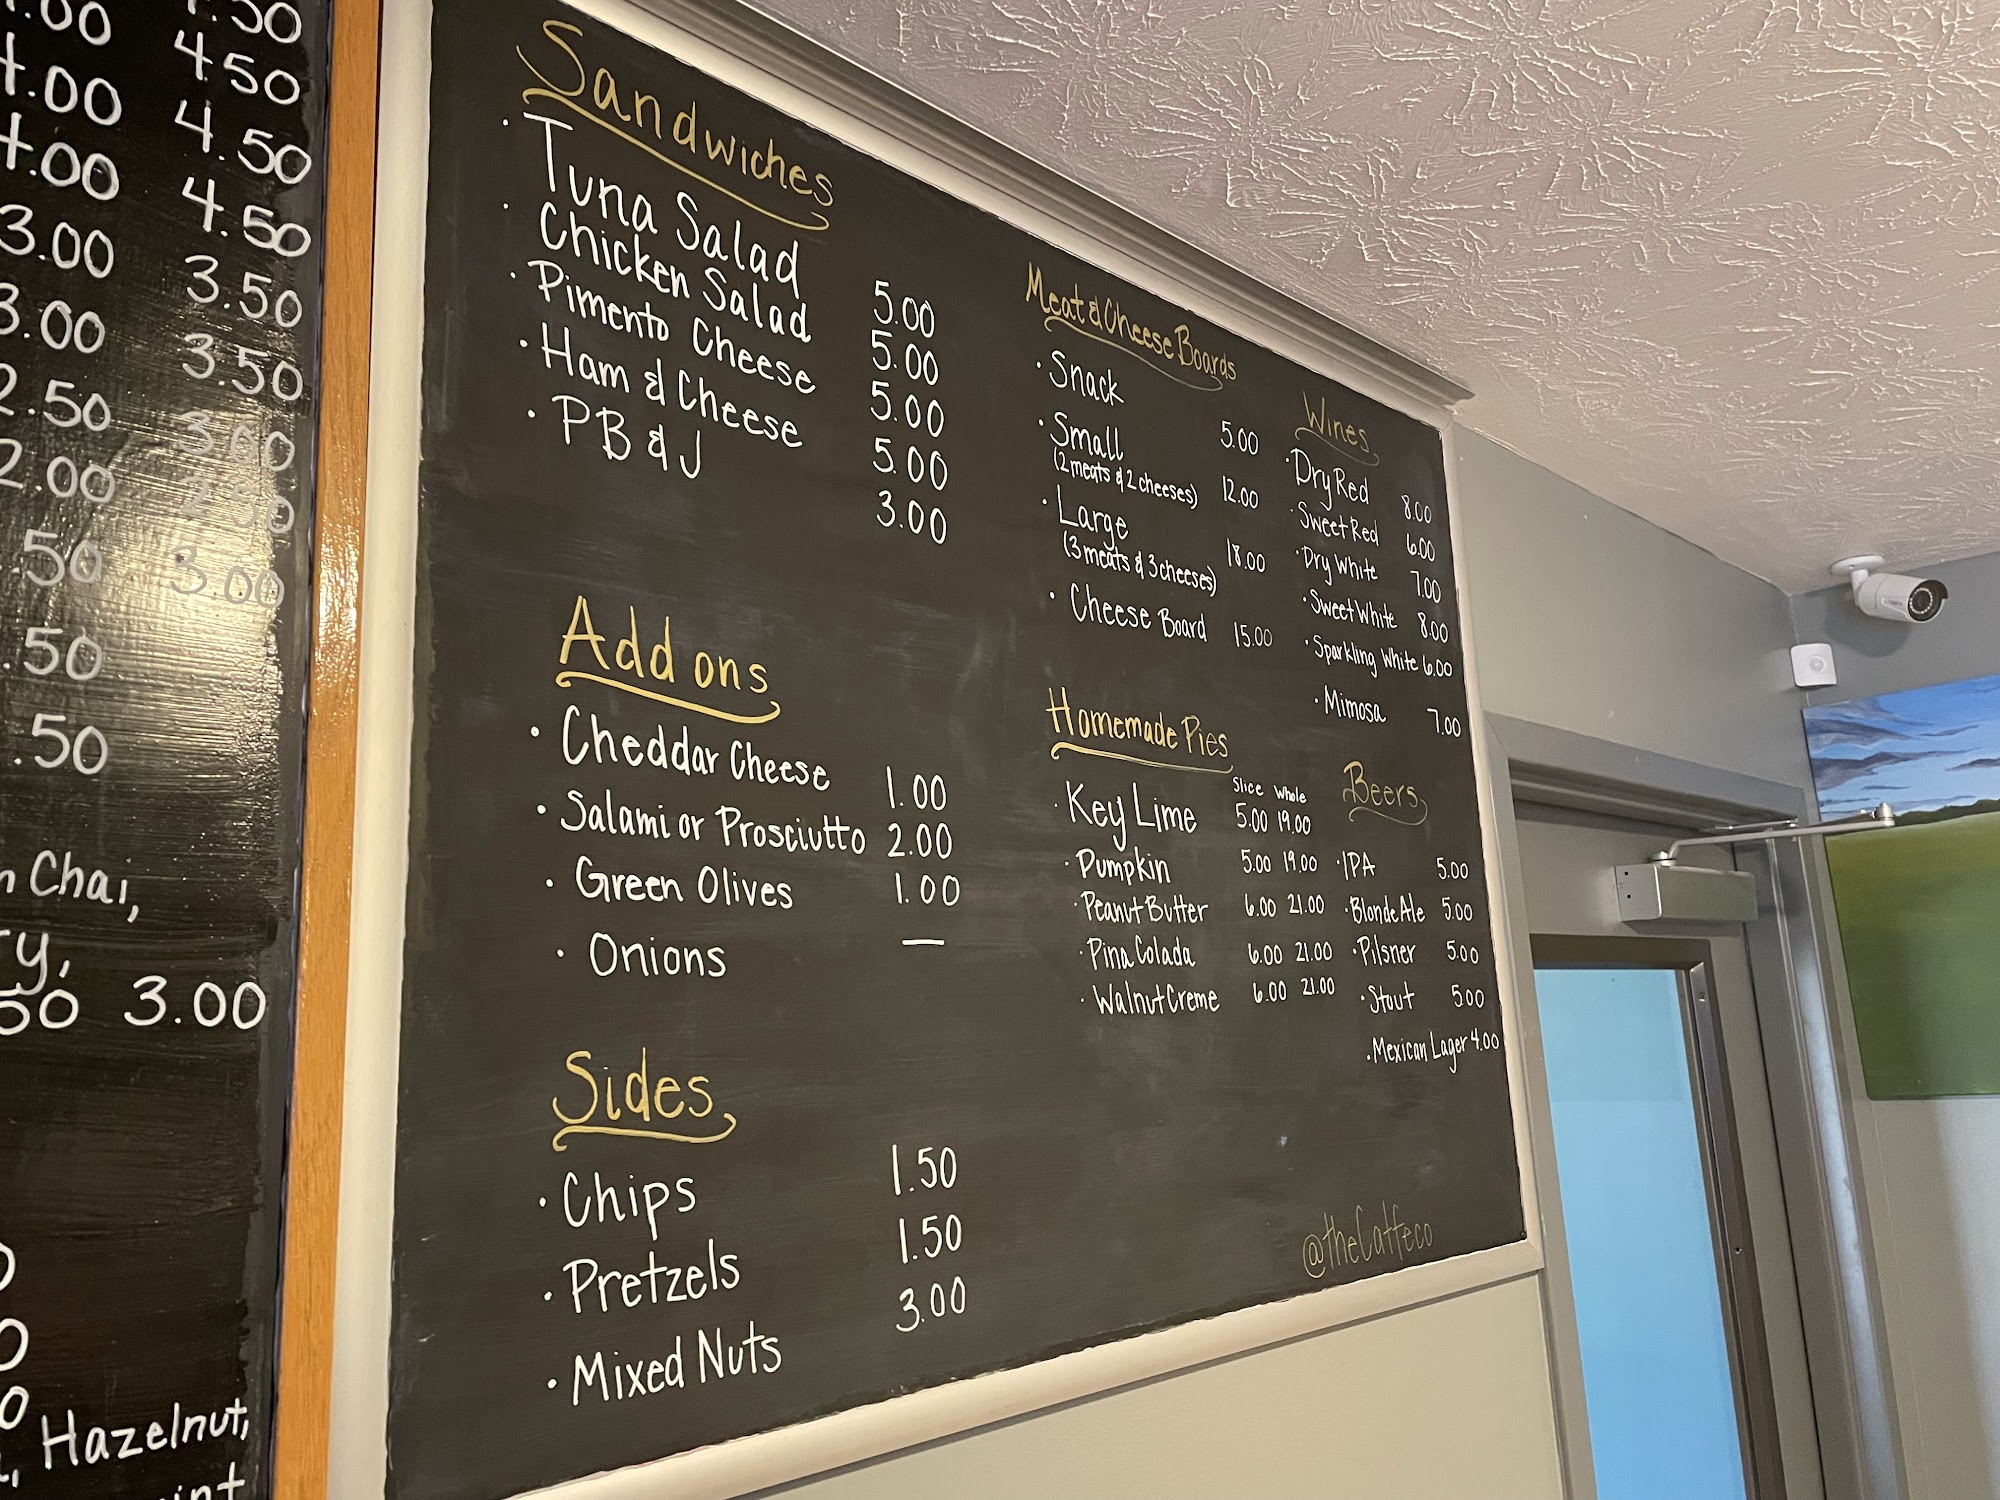 .00 4.50
4.00 4.50
4.00 4.50
3.00 4.50
3.00 3.50
2.50 3.50
2.00 3.00
.50 2.50
.50 3.00
.50
Chai,
3.00
Hazelnut,
Sandwiches
· Tuna Salad 5.00
· Chicken Salad 5.00
· Pimento Cheese 5.00
· Ham & Cheese 5.00
· PB & J 3.00
Add ons
· Cheddar Cheese 1.00
· Salami or Prosciutto 2.00
· Green Olives 1.00
· Onions —
Sides
· Chips 1.50
· Pretzels 1.50
· Mixed Nuts 3.00
Meat & Cheese Boards
· Snack 5.00
· Small 12.00
(2 meats & 2 cheeses)
· Large 18.00
(3 meats & 3 cheeses)
· Cheese Board 15.00
Homemade Pies
Slice Whole
· Key Lime 5.00 19.00
· Pumpkin 5.00 19.00
· Peanut Butter 6.00 21.00
· Pina Colada 6.00 21.00
· Walnut Creme 6.00 21.00
Wines
· Dry Red 8.00
· Sweet Red 6.00
· Dry White 7.00
· Sweet White 8.00
· Sparkling White 6.00
· Mimosa 7.00
Beers
· IPA 5.00
· Blonde Ale 5.00
· Pilsner 5.00
· Stout 5.00
· Mexican Lager 4.00
@theCatfeco